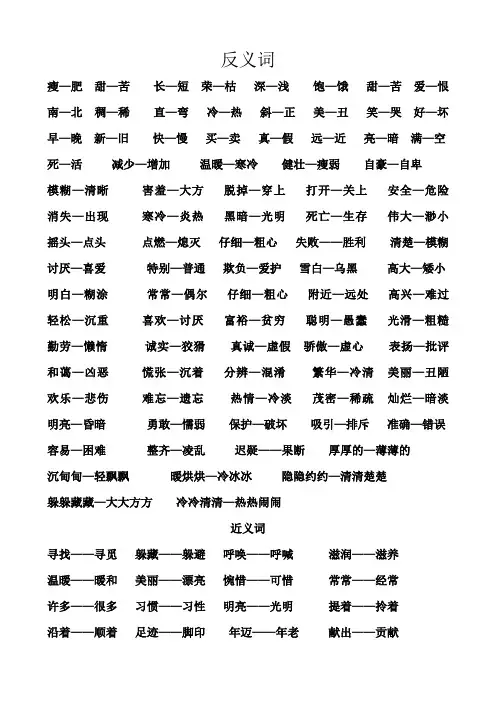 反义词
瘦—肥 甜—苦 长—短 荣—枯 深—浅 饱—饿 甜—苦 爱—恨
南—北 稠—稀 直—弯 冷—热 斜—正 美—丑 笑—哭 好—坏
早—晚 新—旧 快—慢 买—卖 真—假 远—近 亮—暗 满—空
死—活 减少—增加 温暖—寒冷 健壮—瘦弱 自豪—自卑
模糊—清晰 害羞—大方 脱掉—穿上 打开—关上 安全—危险
消失—出现 寒冷—炎热 黑暗—光明 死亡—生存 伟大—渺小
摇头—点头 点燃—熄灭 仔细—粗心 失败——胜利 清楚—模糊
讨厌—喜爱 特别—普通 欺负—爱护 雪白—乌黑 高大—矮小
明白—糊涂 常常—偶尔 仔细—粗心 附近—远处 高兴—难过
轻松—沉重 喜欢—讨厌 富裕—贫穷 聪明—愚蠢 光滑—粗糙
勤劳—懒惰 诚实—狡猾 真诚—虚假 骄傲—虚心 表扬—批评
和蔼—凶恶 慌张—沉着 分辨—混淆 繁华—冷清 美丽—丑陋
欢乐—悲伤 难忘—遗忘 热情—冷淡 茂密—稀疏 灿烂—暗淡
明亮—昏暗 勇敢—懦弱 保护—破坏 吸引—排斥 准确—错误
容易—困难 整齐—凌乱 迟疑——果断 厚厚的—薄薄的
沉甸甸—轻飘飘 暖烘烘—冷冰冰 隐隐约约—清清楚楚
躲躲藏藏—大大方方 冷冷清清—热热闹闹
近义词
寻找——寻觅 躲藏——躲避 呼唤——呼喊 滋润——滋养
温暖——暖和 美丽——漂亮 惋惜——可惜 常常——经常
许多——很多 习惯——习性 明亮——光明 提着——拎着
沿着——顺着 足迹——脚印 年迈——年老 献出——贡献